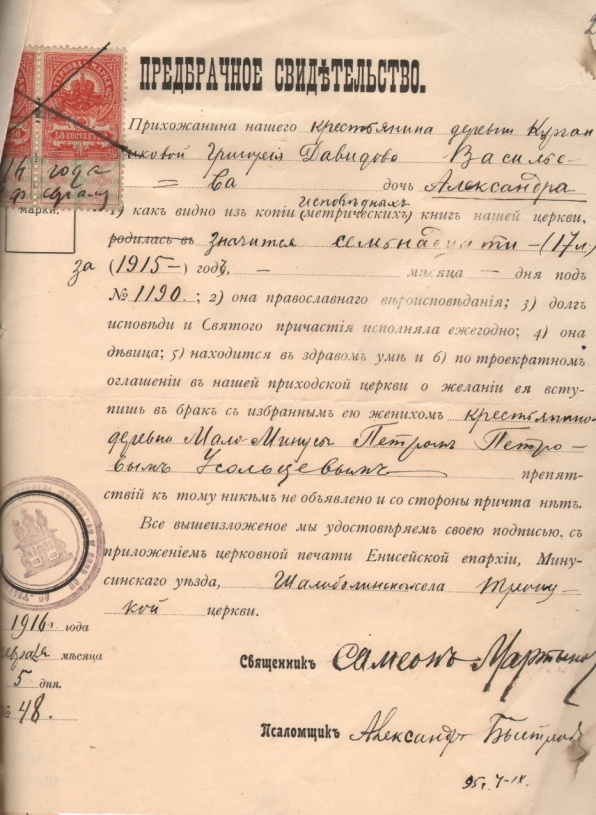 2
ПРЕДБРАЧНОЕ СВИДѢТЕЛЬСТВО.
50 КОПѢЕКЪ
года
марки.
Прихожанина нашего крестьянина деревни Курган
чиковой Григорія Давидова Василье-
= ва дочь Александра
исповѣдныхъ
1) какъ видно изъ копіи (метрическихъ) книгъ нашей церкви,
родилась въ значится семьнадцати - (17 л)
за (1915 -) годъ, - мѣсяца — дня подъ
№ 1190. ; 2) она православнаго вѣроисповѣданія; 3) долгъ
исповѣди и Святого причастія исполняла ежегодно; 4) она
дѣвица; 5) находится въ здравомъ умѣ и 6) по троекратномъ
оглашеніи въ нашей приходской церкви о желаніи ея всту-
пишь въ бракъ съ избраннымъ ею женихомъ крестьянино
деревни Мало-Минусы Петромъ Петро-
вымъ Усольцевымъ препят-
ствій къ тому никѣмъ не объявлено и со стороны причта нѣтъ.
Все вышеизложеное мы удостовѣряемъ своею подписью, съ
приложеніемъ церковной печати Енисейской епархіи, Мину-
синскаго уѣзда, Шалоболинска села Троиц-
кой церкви.
1916 г. года
февраля мѣсяца
5 дня.
№ 48.
Священникъ Симеонъ Мартынов
Псаломщикъ Александръ Быстров